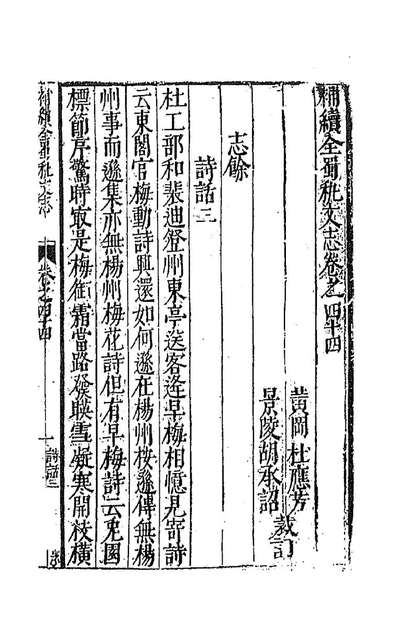 補續全蜀秇文志卷之四十四
黃岡杜應芳
景陵胡承詔
裁訂
志餘
詩話三
杜工部和裴迪登州東亭送客逢早梅相憶見寄詩
云東閣官梅動詩興還如何遜在楊州按遜傳無楊
州事而遜集亦無楊州梅花詩但有早梅詩云兎園
標節序驚時㝡是梅銜霜當路發映雪凝寒開枝橫
補續全蜀秇文志
卷之四十四
一
詩話三